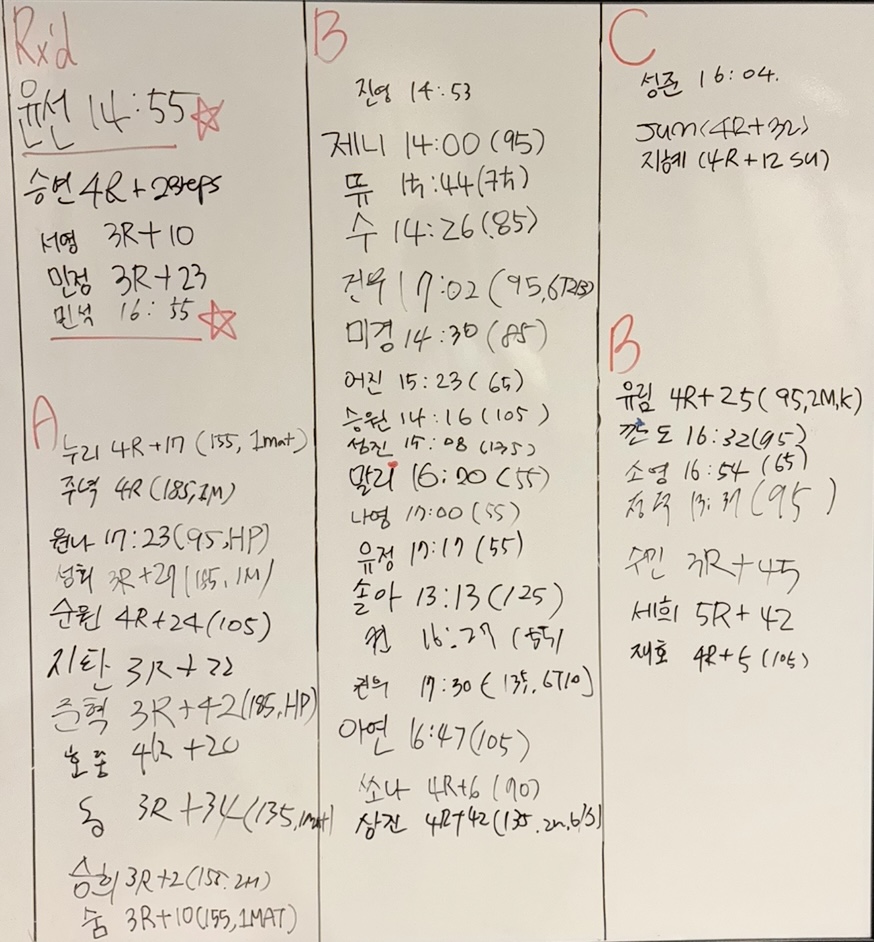 Rx'd
윤선 14:55
승변 4R + 23reps
서영 3R+10
민정 3R+23
민석 16:55
A
누리 4R+17 (155, 1mat)
주덕 4R (185, 1M)
원나 17:23 (95, HP)
성희 3R+27 (185, 1M)
순원 4R+24 (105)
지탄 3R+22
준혁 3R+42 (185, HP)
호중 4R+20
동 3R+34 (135, 1mat)
승희 3R+2 (155. 2M)
숨 3R+10 (155, 1MAT)
B
진영 14:53
제니 14:00 (95)
뜌
수 14:26 (85)
건우 17:02 (95,
미경 14:30 (85)
어진 15:23 (65)
승원 14:16 (105)
성진 15:08 (135)
말리 16:20 (55)
나영 17:00 (55)
유정 17:17 (55)
솔아 13:13 (125)
퀸 16:27 (55)
17:30 (135, 6T10)
아연 16:47 (105)
쏘나 4R+6 (90)
상진 4R+42 (135. 2m,
C
성준 16:04.
Jun (4R+32)
지혜 (4R+12 SU)
B
유림 4R+25 (95, 2M, K)
깐도 16:32 (95)
소영 16:54 (65)
13:37 (95)
수민 3R+45
세희 5R+42
재호 4R+5 (105)